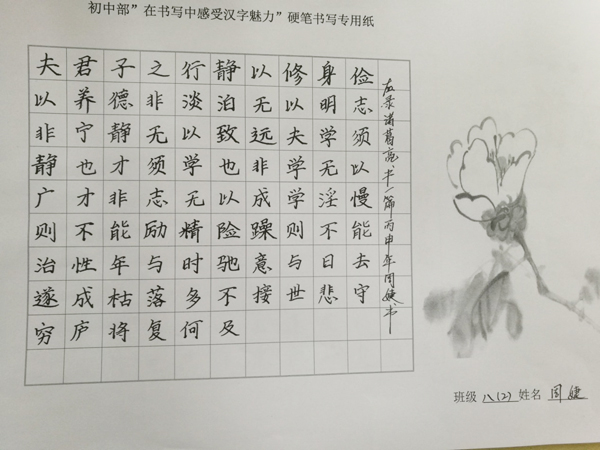 初中部”在书写中感受汉字魅力”硬笔书写专用纸
夫君子之行静以修身俭
以养德非淡泊无以明志
非宁静无以致远夫学须
静也才须学也非学无以
广才非志无以成学淫慢
则不能励精险躁则不能
治性年与时驰意与日去
遂成枯落多不接世悲守
穷庐将复何及
右录诸葛亮书一篇丙申年周婕书
班级 八(2) 姓名 周婕